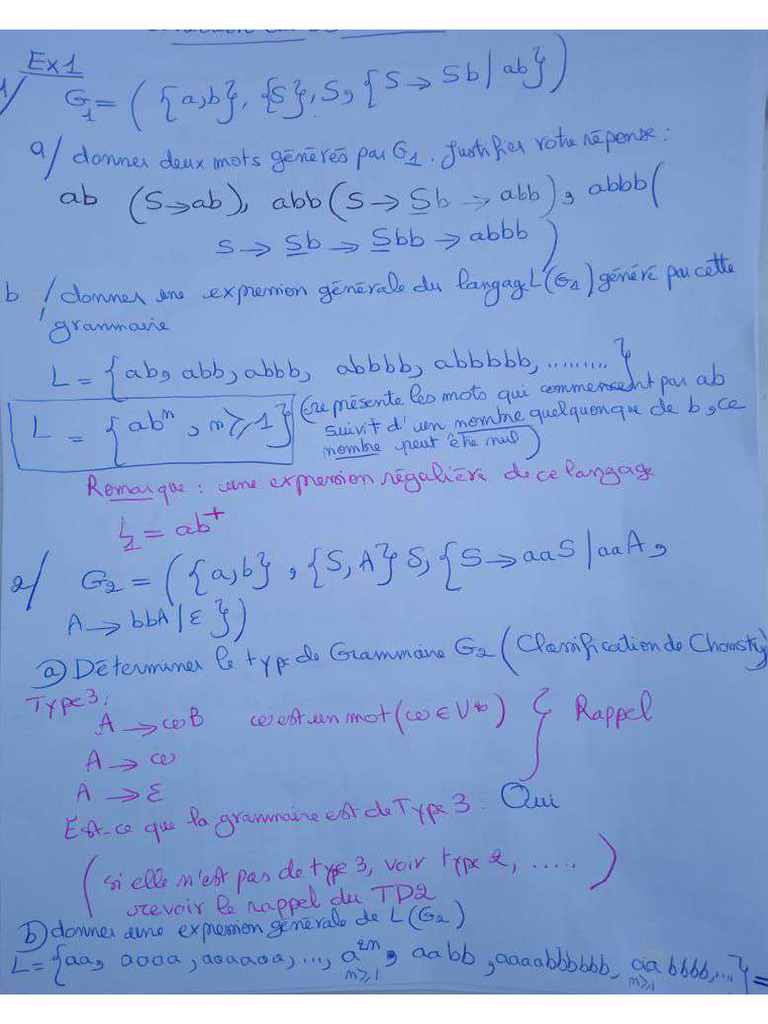 Ex1
1/
G1 = ( {a,b}, {S}, S, { S → Sb | ab } )
a/ donner deux mots générés par G1. Justifier votre réponse :
ab (S→ab), abb (S → Sb → abb), abbb (
S → Sb → Sbb → abbb )
b / donner une expression générale du langage L(G1) généré par cette
grammaire
L = { ab, abb, abbb, abbbb, abbbbb, ......... }
L = { abⁿ, n ≥ 1 } (représente les mots qui commencent par ab
suivit d'un nombre quelquonque de b, ce
nombre peut être nul)
Remarque : une expression régulière de ce langage
L1 = ab⁺
2/ G2 = ( {a,b}, {S, A} S, { S → aaS | aaA,
A → bbA | ε } )
a) Déterminer le type de Grammaire G2 (Classification de Chomsky)
Type 3 :
A → ωB ω est un mot (ω ∈ V*) } Rappel
A → ω
A → ε
Est-ce que la grammaire est de Type 3 : Oui
( si elle n'est pas de type 3, voir type 2, ..... )
revoir le rappel du TD2
b) donner une expression générale de L(G2)
L = { aa, aaaa, aaaaaa, ..., a²ⁿ n≥1, aabb, aaaabbbbbb, aa bbbb, ... } =
n≥1